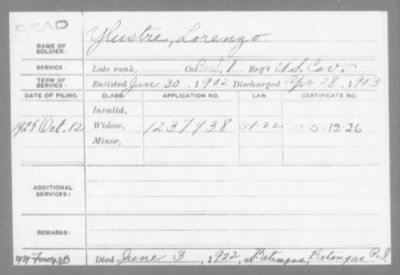 DEAD
NAME OF SOLDIER: Ylustre, Lorenzo
SERVICE: Late rank, Co. 1 Reg't U.S. Cav.
TERM OF SERVICE: Enlisted Jan 30, 1902 Discharged Apr 28, 1903
DATE OF FILING. CLASS. APPLICATION NO. LAW. CERTIFICATE NO.
Invalid,
1925 Oct. 12 Widow, 1237938
Minor,
ADDITIONAL SERVICES:
REMARKS:
Died June 3, 1922, at Batangas, Batangas P.I.